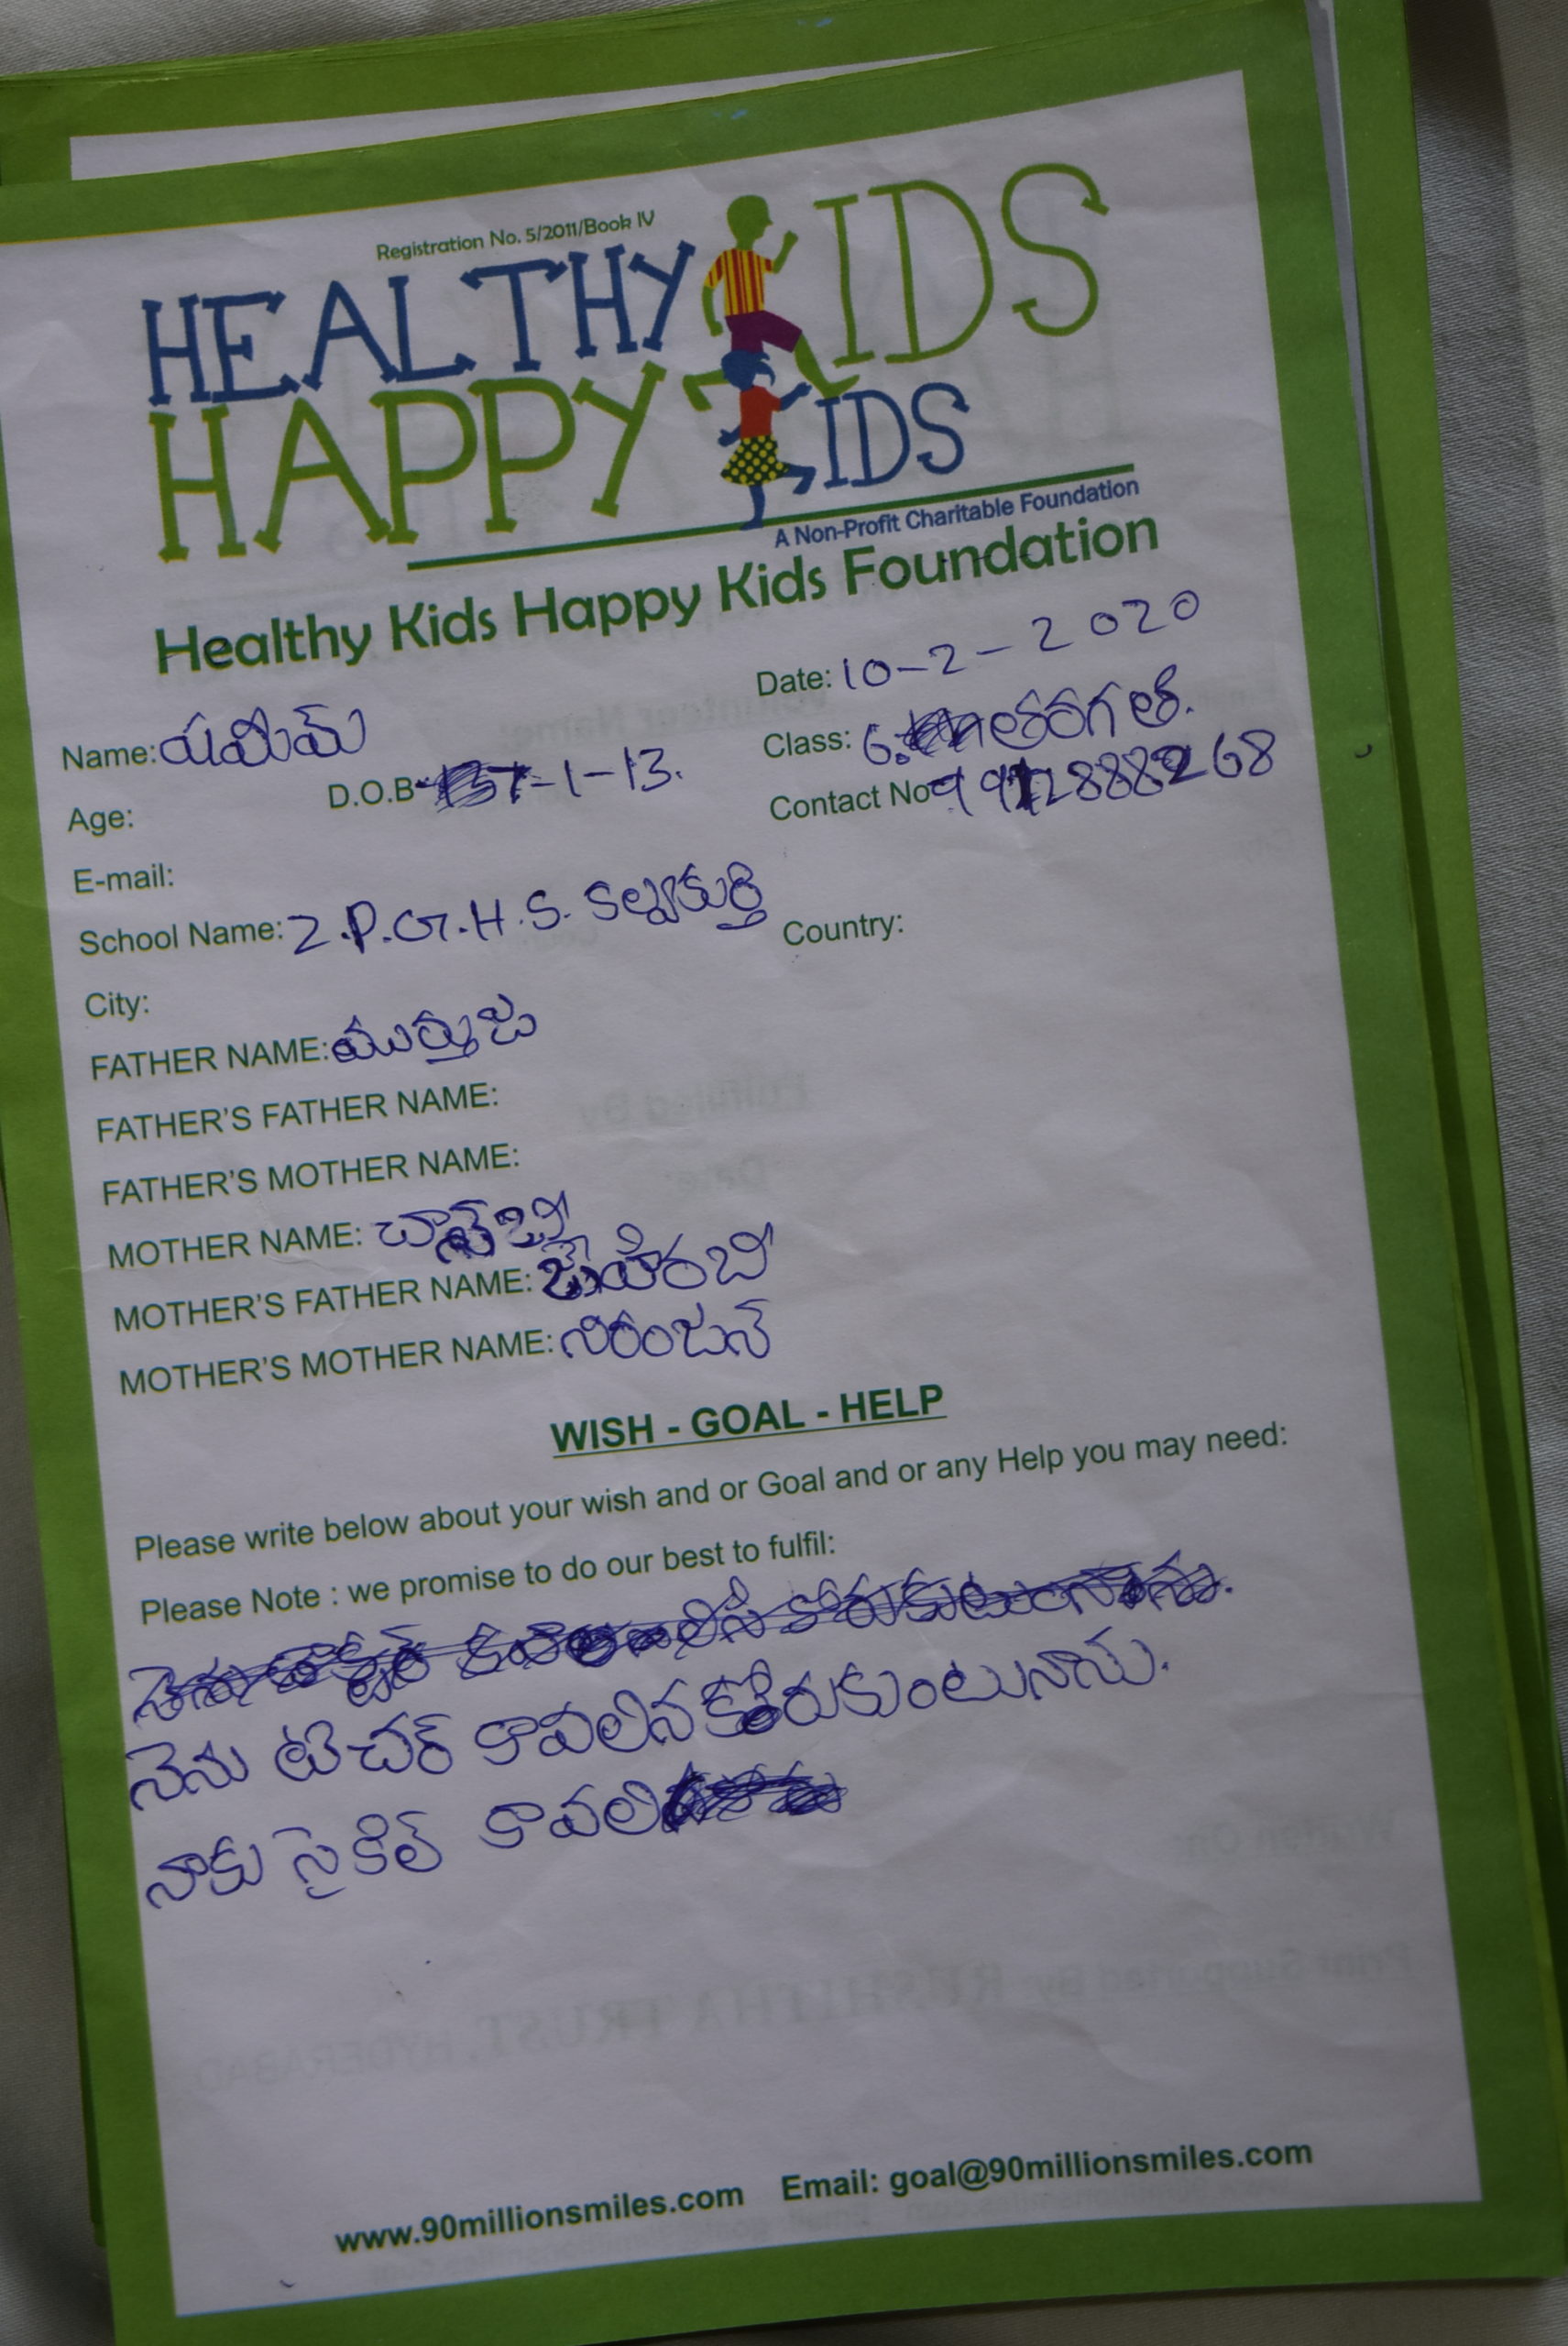 Registration No. 5/2011/Book IV
HEALTHY KIDS
HAPPY KIDS
A Non-Profit Charitable Foundation
Healthy Kids Happy Kids Foundation
Date: 10-2-2020
Name: షమీమ్
Class: 6. తరగతి.
Age:
D.O.B 7-1-13.
Contact No
E-mail:
School Name: Z.P.G.H.S. కల్వకుర్తి
Country:
City:
FATHER NAME: ముర్తుజ
FATHER'S FATHER NAME:
FATHER'S MOTHER NAME:
MOTHER NAME:
MOTHER'S FATHER NAME:
MOTHER'S MOTHER NAME: నిరంజన్
WISH - GOAL - HELP
Please write below about your wish and or Goal and or any Help you may need:
Please Note : we promise to do our best to fulfil:
నెను టిచర్ కావలిన కోరుకుంటునాను.
నాకు సైకిల్ కావలి
www.90millionsmiles.com Email: goal@90millionsmiles.com